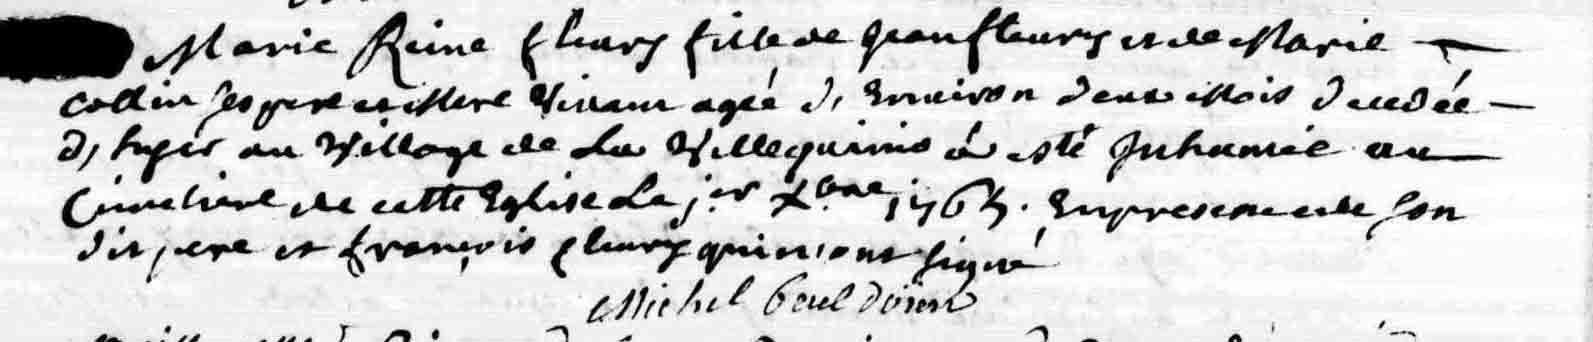 Marie Reine fleury fille de Jean fleury et de Marie
collin ses pere et Mere vivant agée d'Environ deux Mois decedée
d'hyer au Village de La Villequinio a esté Inhumée au
Cimetiere de cette Eglise Le j.er xbre 1765. En presence de son
dit pere et françois fleury qui n'ont signé
Michel